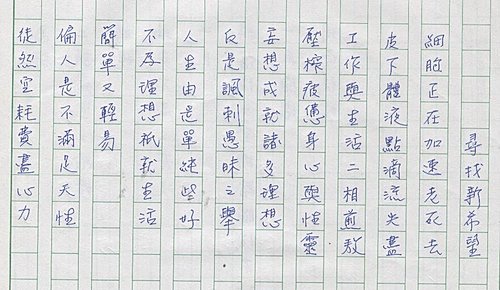 尋找新希望
細胞正在加速老死去
皮下體液點滴流光盡
工作與生活二相煎熬
壓榨疲憊身心與性靈
妄想成就諸多理想
反是諷刺愚昧之舉
人生由是單純些好
不存理想祇就生活
簡單又輕易
偏人是不滿足天性
徒然空耗費盡心力